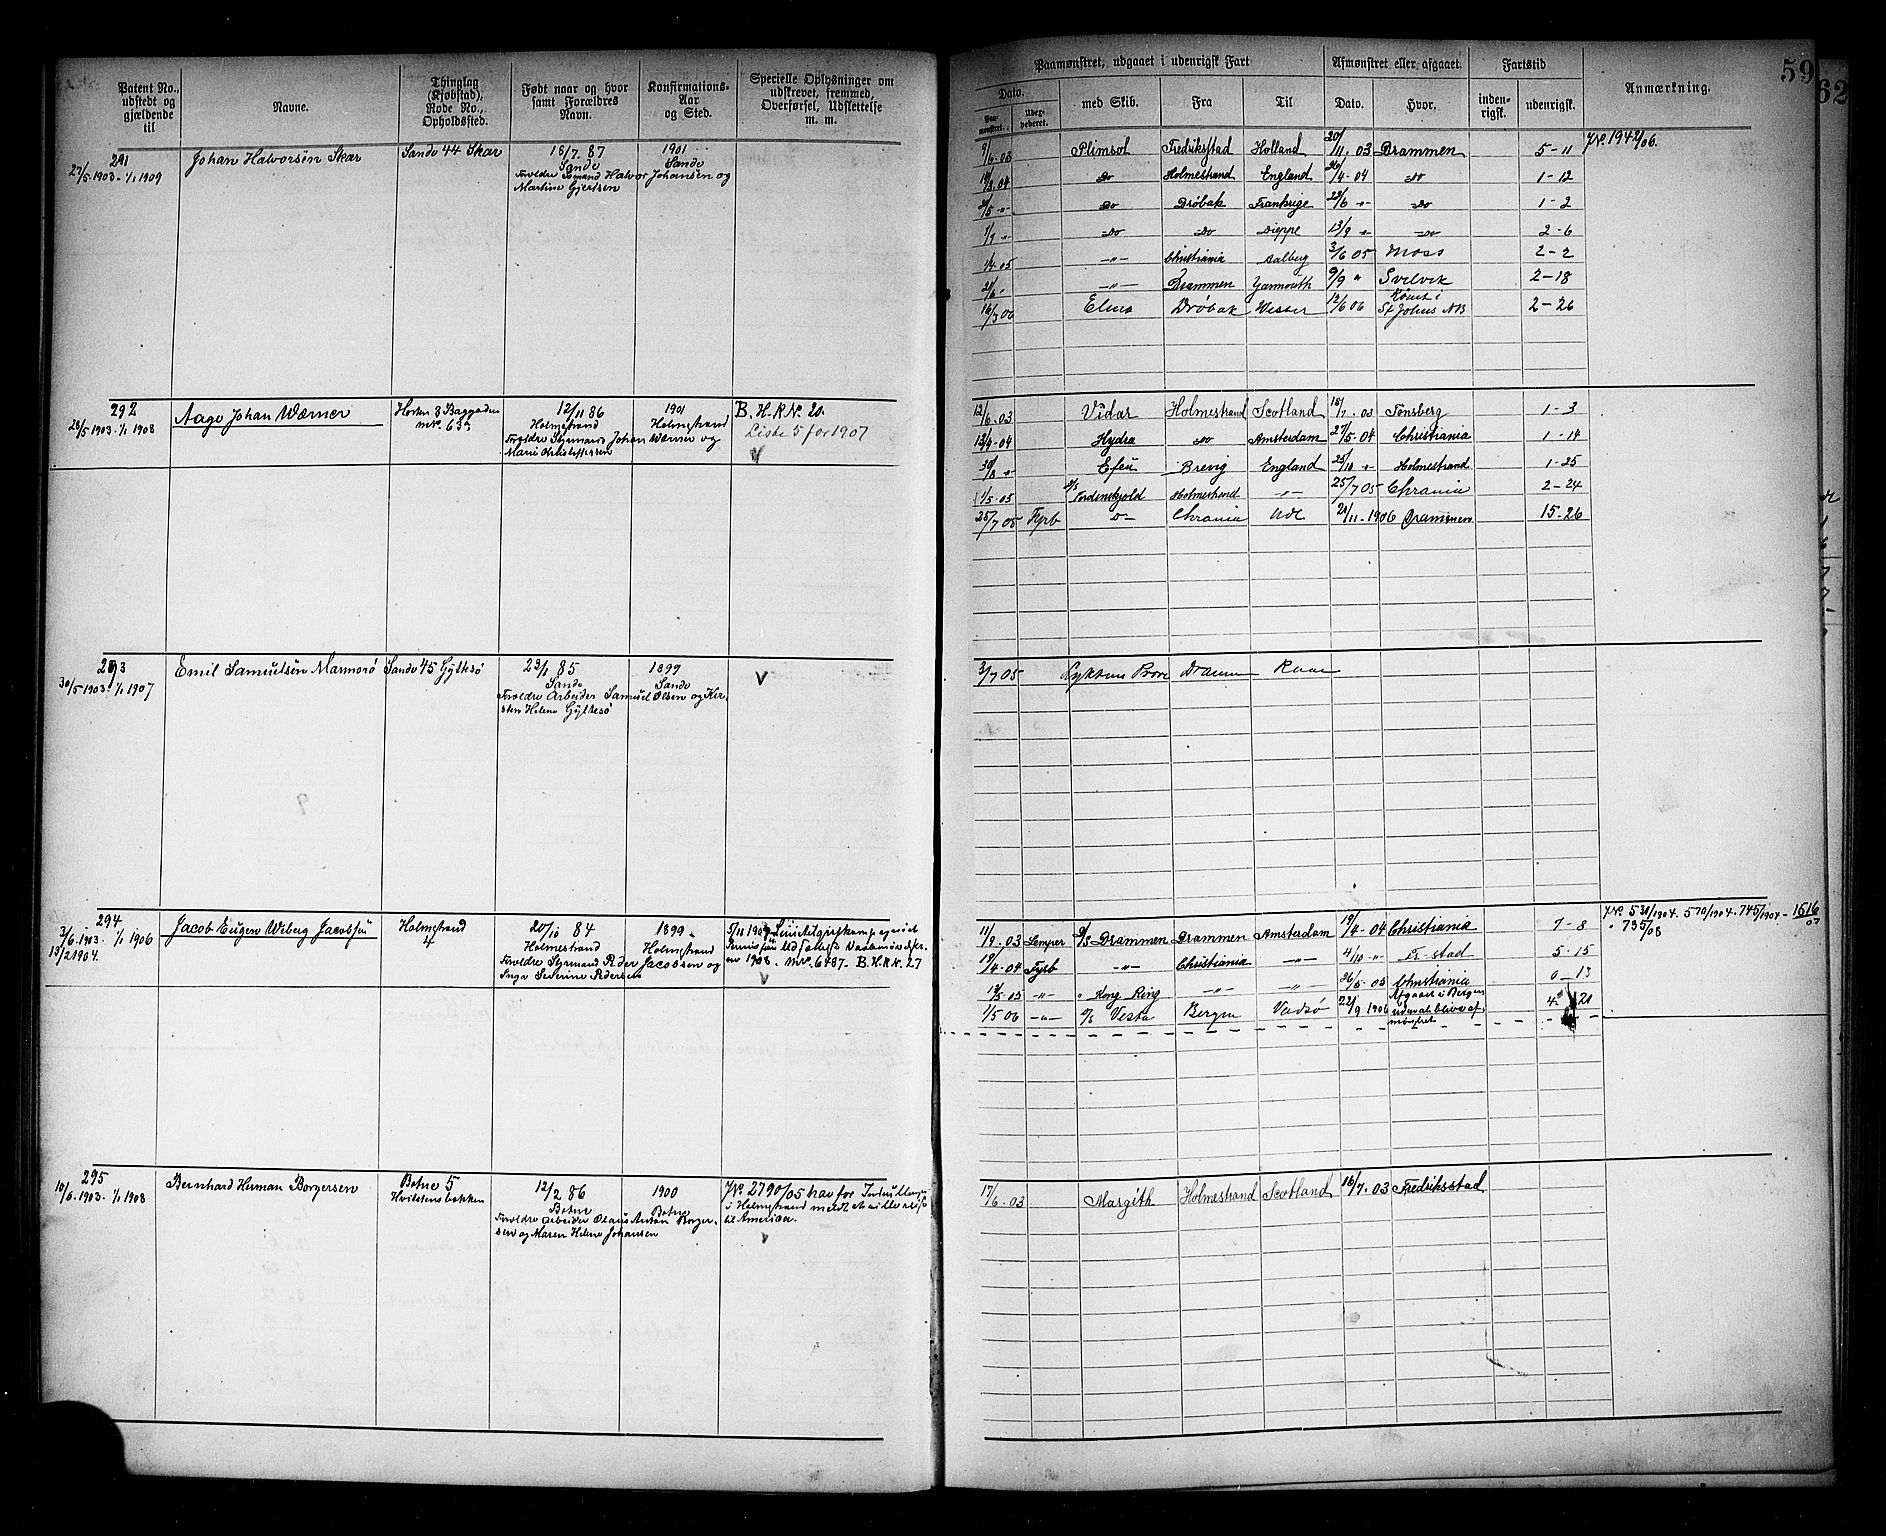 Patent No., udstedt og gjældende til
Navne.
Thinglag (Kjøbstad), Rode No., Opholdssted.
Født naar og hvor samt Forældres Navn.
Konfirmations-Aar og Sted.
Specielle Oplysninger om udskrevet, fremmed, Overførsel, Udslettelse m. m.
Paamønstret, udgaaet i udenrigsk Fart
Afmønstret eller afgaaet.
Fartstid
Anmærkning.
59
62
Dato.
Paamønstret.
med Skib.
Fra
Til
Dato.
Hvor.
inden-rigsk.
udenrigsk.
291
27/5.1903 - 1/1 1909
Johan Halvorsen Skar
Sande 44 Skar
18/7. 87
Sande
Forældre Sømand Halvor Johansen og
Martine Gjertsen
1901
Sande
9/6.03 Plimsol Fredrikstad Holland 20/11.03 Drammen 5-11 J.No. 1942/06.
Do Holmestrand England /4-04 Do 1-12
Do Drøbak Frankrige 22/6 -"- Do 1-2
1/7 -"- Do Do Dieppe 13/9 -"- Do 2-6
1/4.05 -"- Christiania Aalborg 3/6 05 Moss 2-2
-"- Drammen Yarmouth 9/9 " Svelvik 2-18
16/3 06 Drøbak 12/6 06 Rømt i St Johns NB 2-26
292
28/5 1903 - 1/1 1908
Aage Johan Wærner
12/11 86
Holmestrand
Forældre Styrmand Johan Wærner og
1901
Holmestrand
B.H.R.No. 20.
Liste 5 for 1907
V
12/6.03 Vidar Holmestrand Scotland 18/7.03 Tønsberg 1-3
13/4-04 Hydra Do Amsterdam 27/5-04 Christiania 1-14
30/8 -"- Brevig England 25/10 -"- Holmestrand 1-25
1/5-05 Holmestrand -"- 25/7 05 Chrania 2-24
25/7 05 Fyrb -"- Chrania 21/11-1906 Drammen 15-26
293
30/5 1903 - 1/1 1907
Emil Samuelsen
Sande 45 Gyltesø
23/1 85
Sande
Forældre Arbeider Samuel Olsen og Kir-
sten Helene Gyltesø
1899
Sande
V
3/7 05 Dramm
294
3/6.1903 - 1/1 1906
13/2 1904.
Jacob Eugen Wiberg Jacobsen
Holmestrand
4
20/10 84
Holmestrand
Forældre Styrmand Peder Jacobsen og
Inga Severine Pedersen
1899
Holmestrand
B.H.R.R. 27
11/9.03 Lemper D/S Drammen Drammen Amsterdam 19/4-04 Christiania 7-8
19/4-04 Fyrb -"- Christiania -"- 4/10 -"- Fr-stad 5-15
-"- " Kong Ring -"- -"- 26/5-05 Christiania 0-13
1/5 06 -"- D/S Vesta Bergen Vadsø 22/9 1906 Afgaaet i Bergen uden at blive afmønstret 4-20
J.No. 538/1904. 570/1904. 745/1904 - 1616/07
" 735/08
295
10/6.1903 - 1/1 1908
Bernhard Herman Borgersen
Botne 5
Hvitstensbakken
12/2 86
Botne
Forældre Arbeider Olaus Anton Borger-
sen og Maren Helene Johansen
1900
Botne
J.No. 2790/05 har for Indrullerge
i Holmestrand meldt at ville reise
til America.
V
17/6.03 Margith Holmestrand Scotland 16/7.03 Fredriksstad